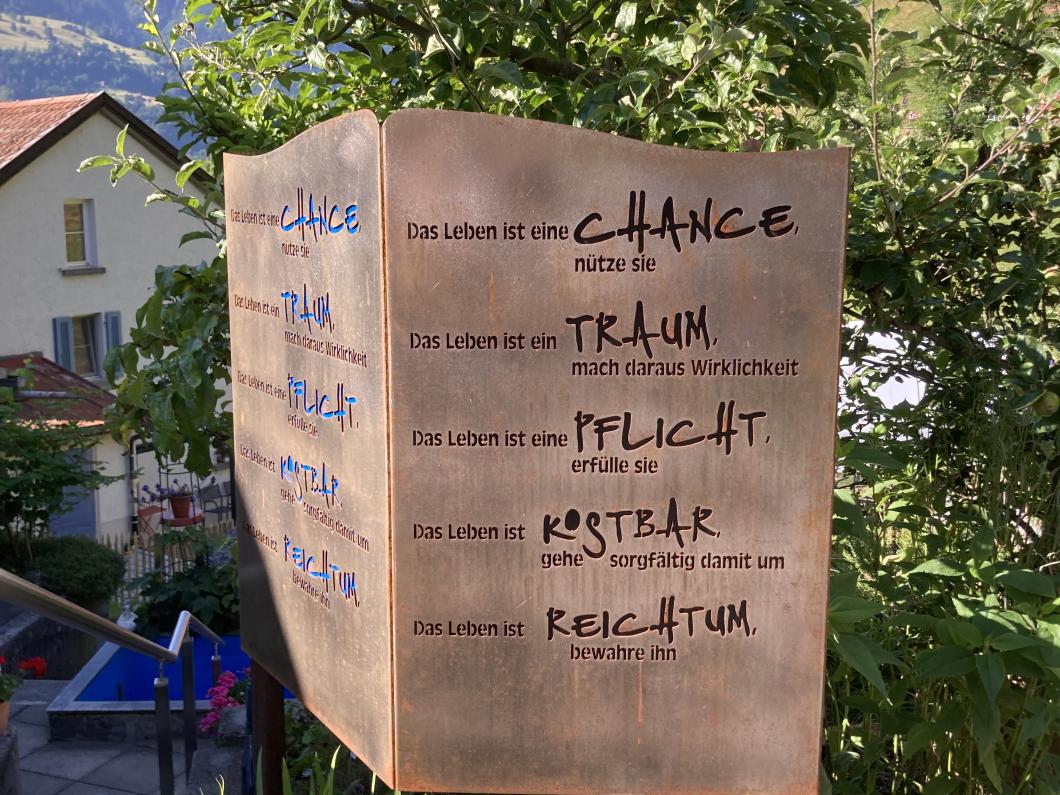 Das Leben ist eine CHANCE,
nütze sie
Das Leben ist ein TRAUM,
mach daraus Wirklichkeit
Das Leben ist eine PFLICHT,
erfülle sie
Das Leben ist KOSTBAR,
gehe sorgfältig damit um
Das Leben ist REICHTUM,
bewahre ihn
Das Leben ist eine CHANCE,
nütze sie
Das Leben ist ein TRAUM,
mach daraus Wirklichkeit
Das Leben ist eine PFLICHT,
erfülle sie
Das Leben ist KOSTBAR,
gehe sorgfältig damit um
Das Leben ist REICHTUM,
bewahre ihn